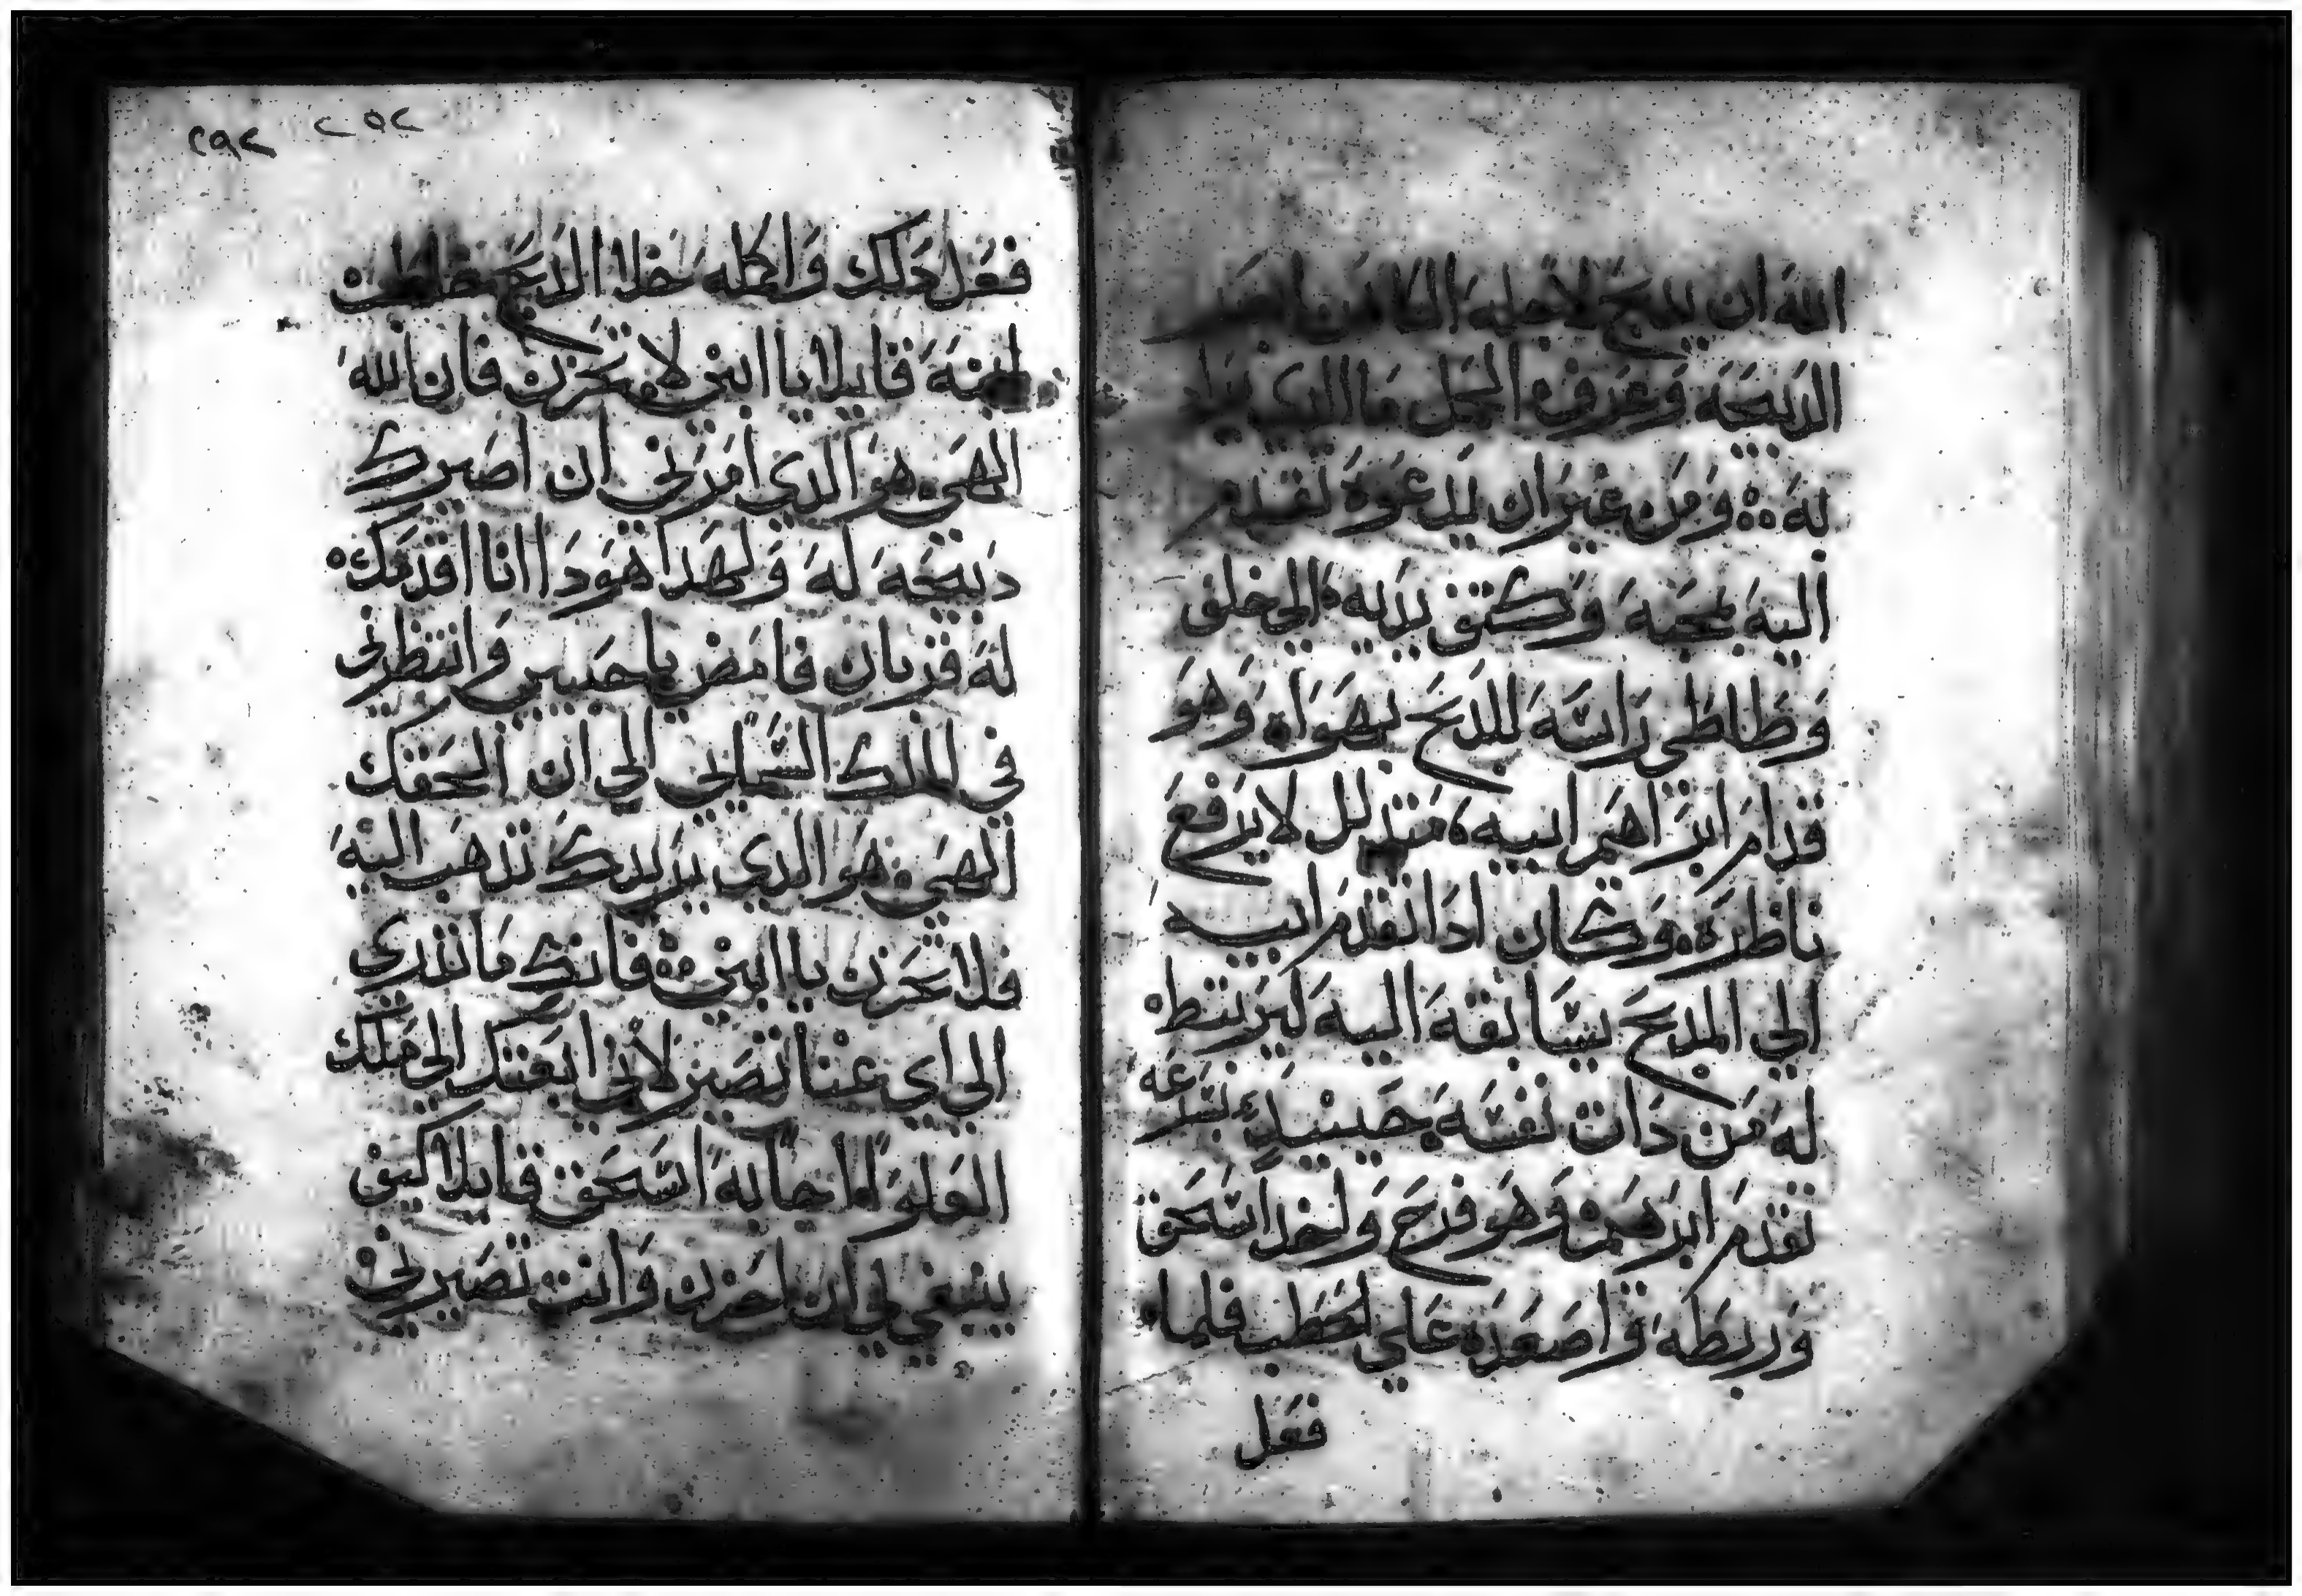 الله ان يدبح لاجله الكاهن
الدبيحة وعرف الحمل ما الدي يراد
له ومن غير ان يدعوه تقدم
اليه بمحبة وكتف يديه الي خلف
وطاطي راسه للدبح بهواه وهو
قدام ابراهيم ابيه متدلل لا يرفع
ناظره وكان ادا تقدم ابيه
الي المدبح يسابقه اليه ليربطه
له من دات نفسه حينيد بسرعه
تقدم ابرهيم وهو فرح واخد اسحق
وربطه واصعده علي الحطب فلما
فعل
٢٥٢ ٢٩٢
فعل دلك واكمله خلا الدبح خاطب
ابنه قايلا يا ابني لا تحزن فان الله
الهي هو الدي امرني ان اصيرك
دبيحة له ولهدا هودا انا اقدمك
له قربان فامض يا حبيبي وانتظرني
في الملك السمايي الي ان الحقك
الهي هو الدي يريدك تدهب اليه
فلا تحزن يا ابني فانك ما تدري
الي اي غنا تصير لاني ابعتك الي ملك
العلو اجابه اسحق قايلا كيف
ينبغي لي ان احزن وانت تصيرني